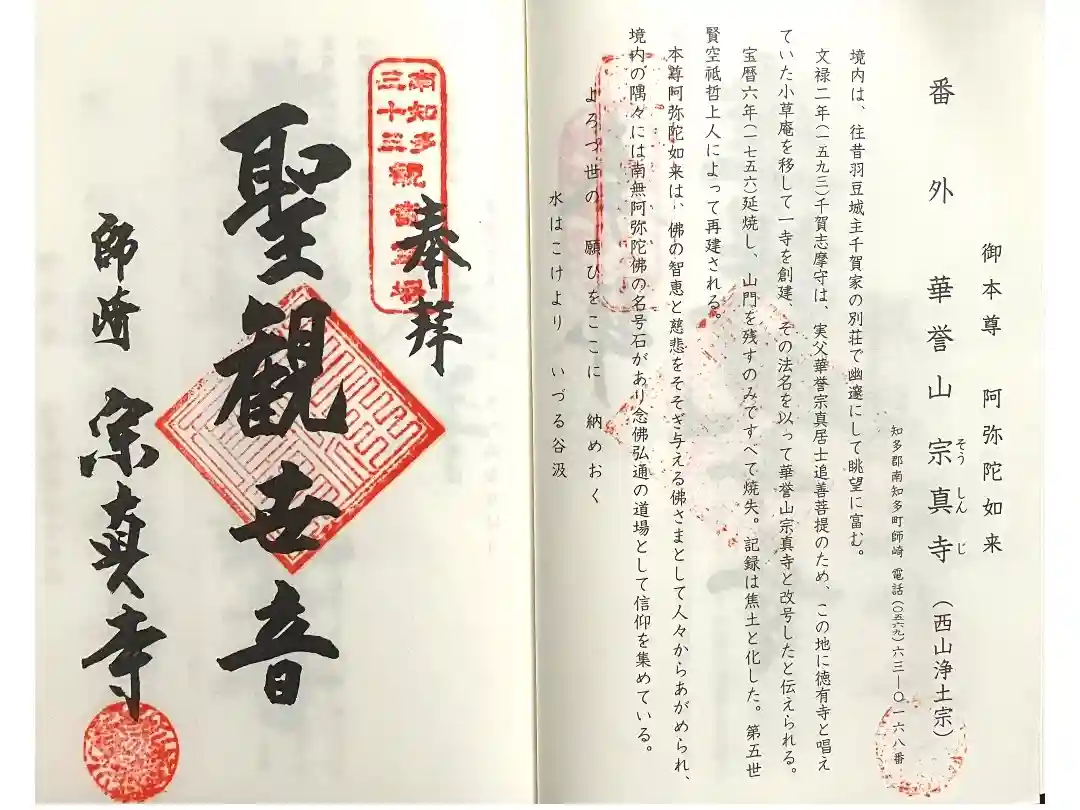 御本尊　阿弥陀如来
番外　華誉山　宗真寺（西山浄土宗）
そうしんじ
知多郡南知多町師崎　電話（〇五六九）六三―〇一六八番
境内は、往昔羽豆城主千賀家の別荘で幽邃にして眺望に富む。
文禄二年（一五九三）千賀志摩守は、実父華誉宗真居士追善菩提のため、この地に徳有寺と唱え
ていた小草庵を移して一寺を創建、その法名を以って華誉山宗真寺と改号したと伝えられる。
宝暦六年（一七五六）延焼し、山門を残すのみですべて焼失。記録は焦土と化した。第五世
賢空祗哲上人によって再建される。
本尊阿弥陀如来は、佛の智恵と慈悲をそそぎ与える佛さまとして人々からあがめられ、
境内の隅々には南無阿弥陀佛の名号石があり念佛弘通の道場として信仰を集めている。
よろづ世の　願ひをここに　納めおく
水はこけより　いづる谷汲
南知多
三十三観音霊場
奉拝
聖観世音
師崎　宗真寺